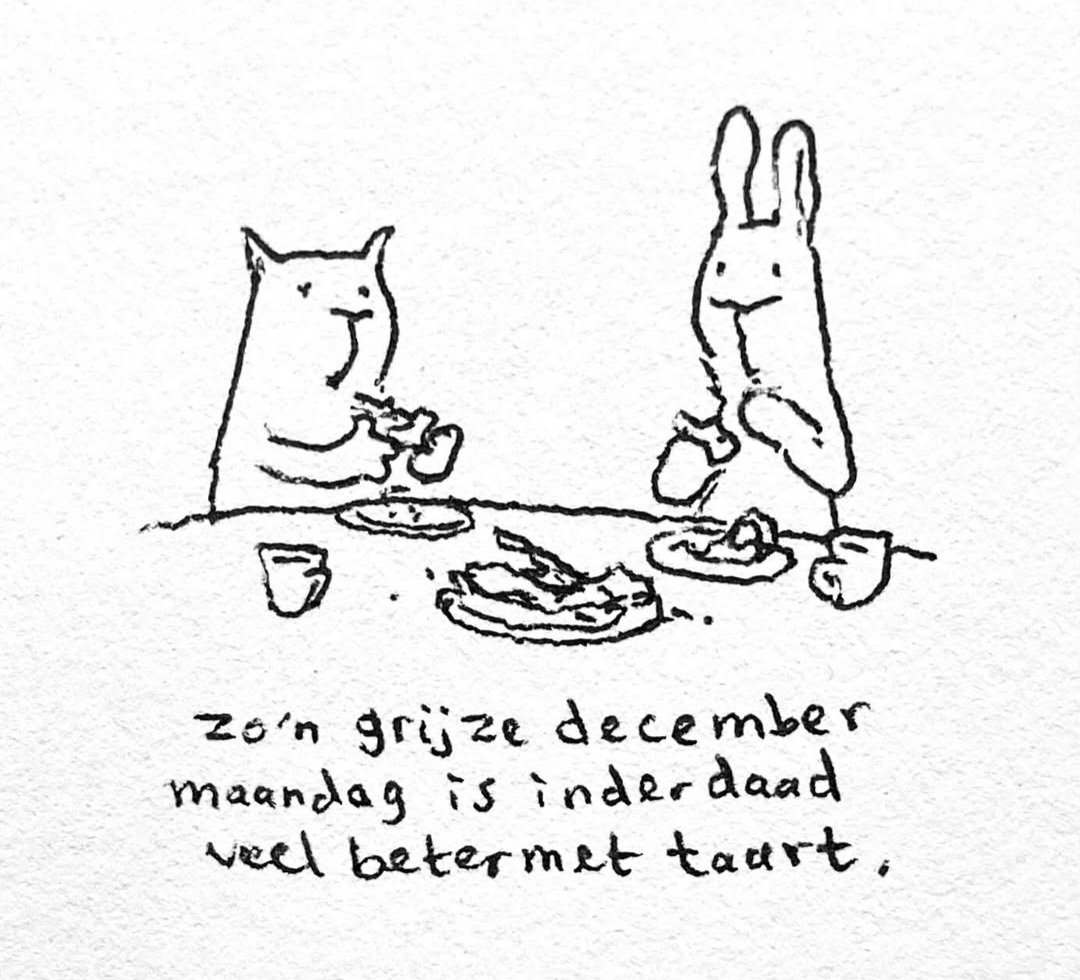 zo'n grijze december
maandag is inderdaad
veel beter met taart.